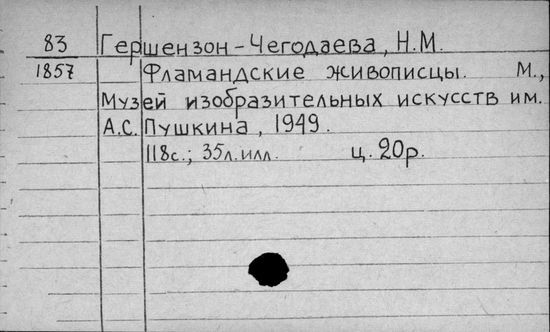 83 Гершензон-Чегодаева, Н.М.
1857 Фламандские живописцы. М.,
Музей изобразительных искусств им.
А.С. Пушкина, 1949.
118с.; 35л.илл. ц. 20р.